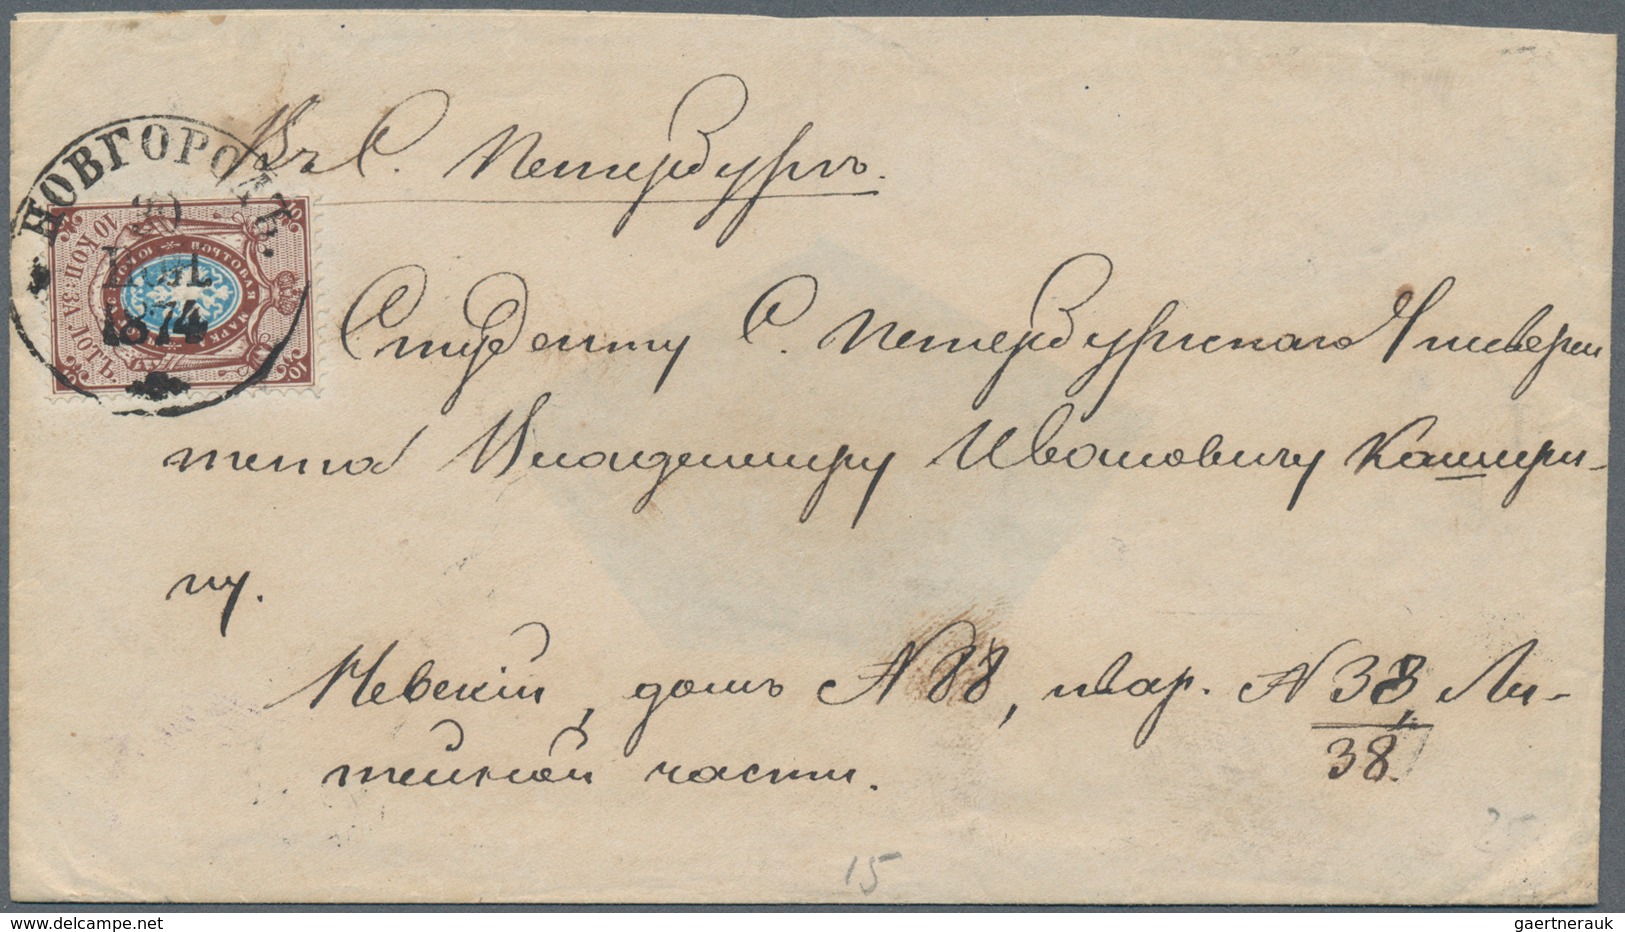 НОВГОРОДЪ.
20
ІЮЛ.
1874
10 КОП: ЗА ЛОТЪ.
ПОЧТОВАЯ МАРКА
10
10
Въ С. Петербургъ.
Студенту С. Петербургскаго Универси
тета Владимиру Ивановичу Кашири-
ну.
Невскій, домъ № 88, квар. № 38, Ли-
38
тейной части.
15
25
gaertnerauk